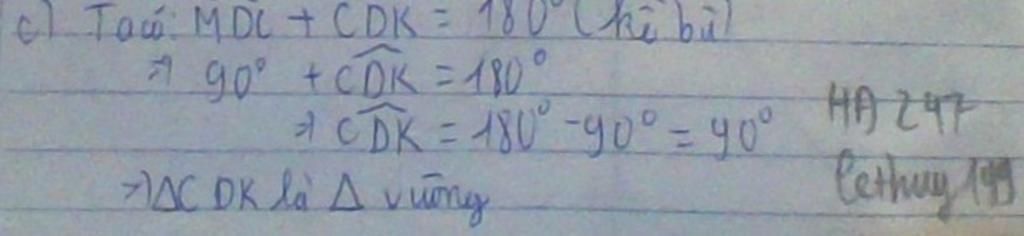 c) Ta có: MDC + CDK = 180° (kề bù)
⇒ 90° + CDK = 180°
⇒ CDK = 180° - 90° = 90°
⇒ ΔCDK là Δ vuông
HA 247
Lethuy 199